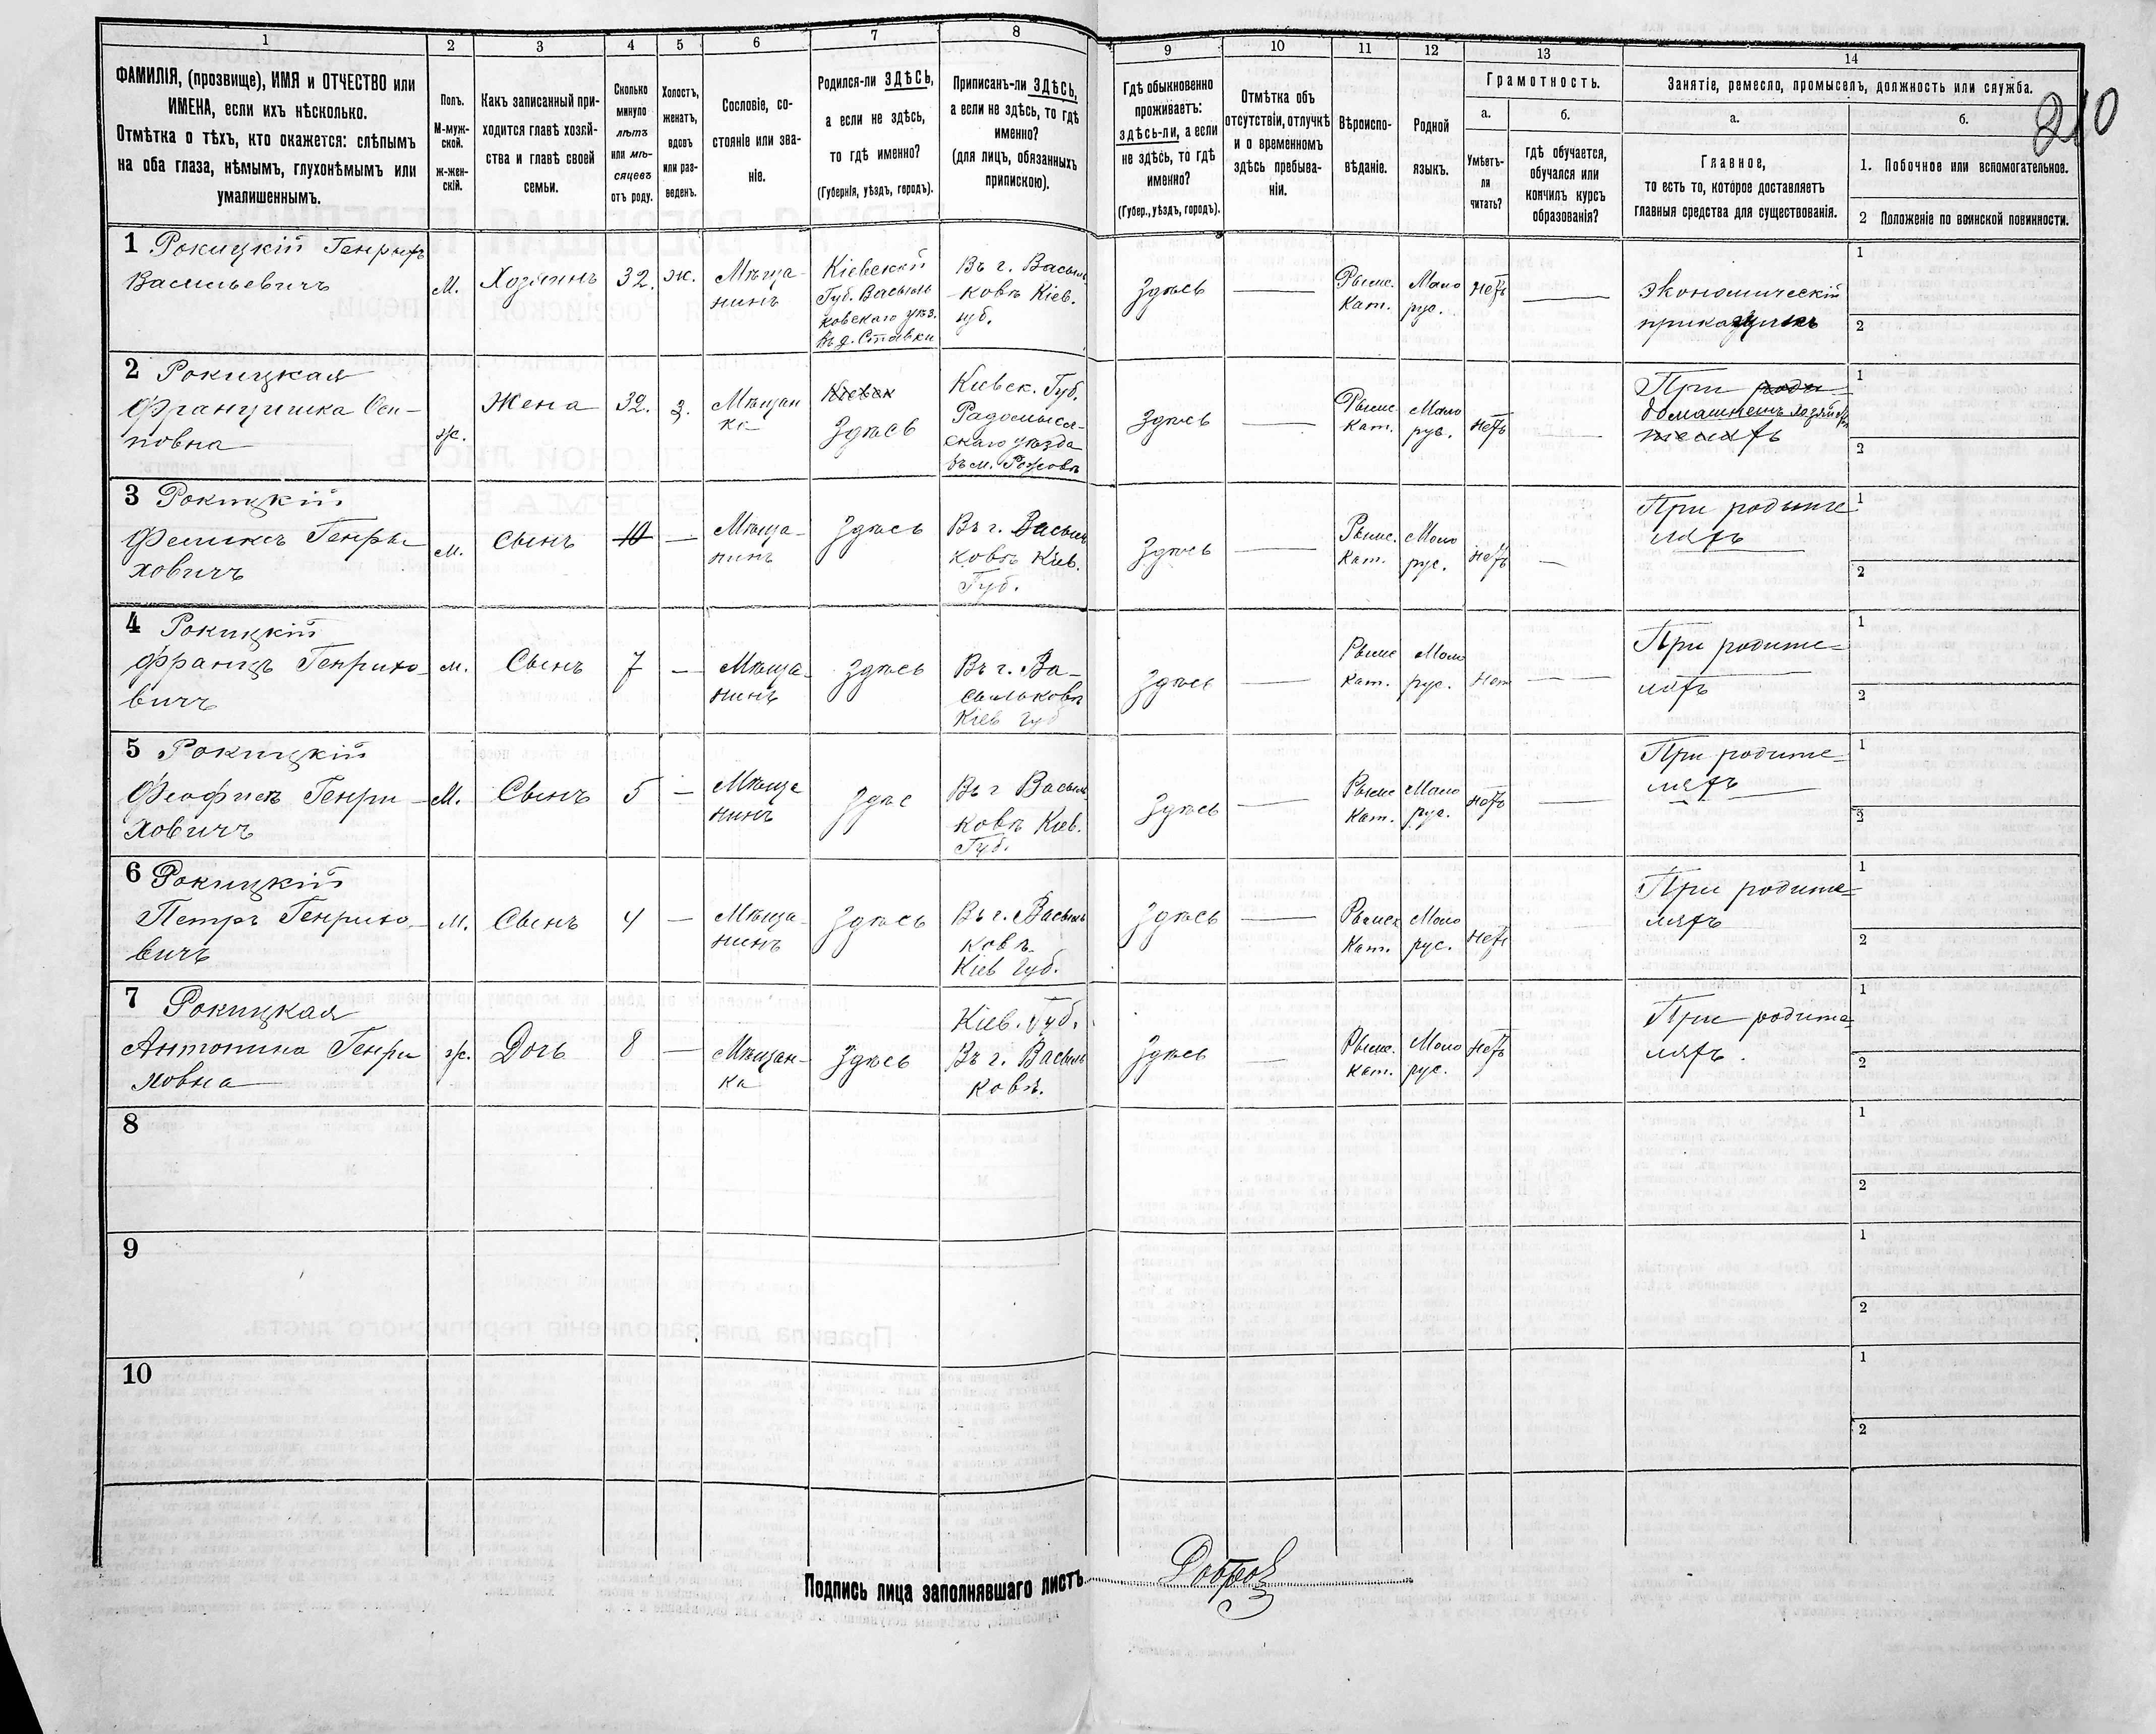 1
2
3
4
5
6
7
8
9
10
11
12
13
14
ФАМИЛІЯ, (прозвище), ИМЯ и ОТЧЕСТВО или
ИМЕНА, если ихъ нѣсколько.
Отмѣтка о тѣхъ, кто окажется: слѣпымъ
на оба глаза, нѣмымъ, глухонѣмымъ или
умалишеннымъ.
Полъ.
М-муж-
ской.
ж-жен-
скій.
Какъ записанный при-
ходится главѣ хозяй-
ства и главѣ своей
семьи.
Сколько
минуло
лѣтъ
или мѣ-
сяцевъ
отъ роду.
Холостъ,
женатъ,
вдовъ
или раз-
веденъ.
Сословіе, со-
стояніе или зва-
ніе.
Родился-ли ЗДѢСЬ,
а если не здѣсь,
то гдѣ именно?
(Губернія, уѣздъ, городъ).
Приписанъ-ли ЗДѢСЬ,
а если не здѣсь, то гдѣ
именно?
(для лицъ, обязанныхъ
припискою).
Гдѣ обыкновенно
проживаетъ:
здѣсь-ли, а если
не здѣсь, то гдѣ
именно?
(Губер., уѣздъ, городъ).
Отмѣтка объ
отсутствіи, отлучкѣ
и о временномъ
здѣсь пребыва-
ніи.
Вѣроиспо-
вѣданіе.
Родной
языкъ.
Грамотность.
а.
Умѣетъ-
ли
читать?
б.
гдѣ обучается,
обучался или
кончилъ курсъ
образованія?
Занятіе, ремесло, промыселъ, должность или служба.
210
а.
Главное,
то есть то, которое доставляетъ
главныя средства для существованія.
б.
1. Побочное или вспомогательное.
2 Положеніе по воинской повинности.
1 Рокицкій Генрихъ
Васильевичъ
М.
Хозяинъ
32.
ж.
Мѣща-
нинъ
Кіевской
Губ. Василь
ковскаго уѣз.
Въ д. Ставки
Въ г. Василь
ковѣ Кіев.
губ.
Здѣсь
Римс.
Кат.
Мало
рус.
нетъ
экономическій
приказчикъ
1
2
2 Рокицкая
Францишка Оси-
повна
ж.
Жена
32.
з.
Мѣщан
ка
Кіевск
Здѣсь
Кіевск. Губ.
Радомысл-
скаго уѣзда
въ м. Рожовѣ
Здѣсь
Римс.
Кат.
Мало
рус.
нетъ
При роди
домашнемъ хозяйствѣ
теляхъ
1
2
3 Рокицкій
Феликсъ Генри-
ховичъ
м.
Сынъ
10
Мѣща-
нинъ
Здѣсь
Въ г. Василь
ковѣ Кіев.
Губ.
Здѣсь
Римс.
Кат.
Мало
рус.
нетъ
При родите
ляхъ
1
2
4 Рокицкій
Францъ Генрихо-
вичъ
м.
Сынъ
7
Мѣща-
нинъ
Здѣсь
Въ г. Ва-
сильковѣ
Кіев Губ
Здѣсь
Римс
Кат.
Мало
рус.
нет
При родите-
ляхъ
1
2
5 Рокицкій
Феофилъ Генри-
ховичъ
М.
Сынъ
5
Мѣща
нинъ
Здѣс
Въ г Василь
ковѣ Кіев.
Губ.
Здѣсь
Римс
Кат.
Мало
рус.
нетъ
При родите-
ляхъ
1
2
6 Рокицкій
Петръ Генрихо-
вичъ
М.
Сынъ
4
Мѣща-
нинъ
Здѣсь
Въ г. Василь
ковѣ
Кіев Губ.
Здѣсь
Римск
Кат.
Мало
рус.
нетъ
При родите-
ляхъ
1
2
7 Рокицкая
Антонина Генри
ховна
ж.
Дочь
8
Мѣщан-
ка
Здѣсь
Кіев. Губ.
Въ г. Василь
ковѣ.
Здѣсь
Римс.
Кат.
Мало
рус.
нетъ
При родите-
ляхъ.
1
2
8
1
2
9
1
2
10
1
2
Подпись лица заполнявшаго листъ